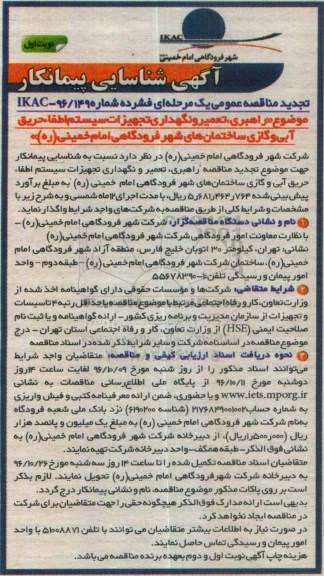 نوبت اول
IKAC
شهر فرودگاهی امام خمینی (ره)
آگهی شناسایی پیمانکار
تجدید مناقصه عمومی یک مرحله‌ای فشرده شماره IKAC-۹۶/۱۴۹
موضوع «راهبری، تعمیر و نگهداری تجهیزات سیستم اطفاء حریق
آبی و گازی ساختمان‌های شهر فرودگاهی امام خمینی (ره)»
شرکت شهر فرودگاهی امام خمینی (ره) در نظر دارد نسبت به شناسایی پیمانکار
جهت موضوع تجدید مناقصه راهبری، تعمیر و نگهداری تجهیزات سیستم اطفاء
حریق آبی و گازی ساختمان‌های شهر فرودگاهی امام خمینی (ره) به مبلغ برآورد
پیش‌بینی شده ریال، با مدت اجرای ۱۲ ماه شمسی و به شرح زیر با
مشخصات و شرایط کلی از طریق مناقصه به شرکت‌های واجد شرایط واگذار نماید.
۱ نام و نشانی دستگاه مناقصه‌گزار: شرکت شهر فرودگاهی امام خمینی (ره) –
با نظارت معاونت امور فرودگاهی شرکت شهر فرودگاهی امام خمینی (ره)
نشانی: تهران، کیلومتر ۳۰ اتوبان خلیج فارس، منطقه آزاد شهر فرودگاهی امام
خمینی (ره)، ساختمان شرکت شهر فرودگاهی امام خمینی (ره) – طبقه دوم – واحد
امور پیمان و رسیدگی تلفن:
۲ شرایط متقاضی: شرکت‌ها و مؤسسات حقوقی دارای گواهینامه اخذ شده از
وزارت تعاون، کار و رفاه اجتماعی مرتبط با موضوع مناقصه یا حداقل رتبه تاسیسات
و تجهیزات از سازمان مدیریت و برنامه ریزی کشور - ارائه گواهینامه و یا ثبت نام
صلاحیت ایمنی (HSE) از وزارت تعاون، کار و رفاه اجتماعی استان تهران – درج
موضوع مناقصه در اساسنامه شرکت و سایر شرایط ذکر شده در اسناد مناقصه
۳ نحوه دریافت اسناد ارزیابی کیفی و مناقصه: متقاضیان واجد شرایط
می‌توانند اسناد مذکور را از روز شنبه مورخ ۹۶/۱۰/۰۹ لغایت ساعت ۱۴ روز
دوشنبه مورخ ۹۶/۱۰/۱۱ از پایگاه ملی اطلاع‌رسانی مناقصات به نشانی
www.iets.mporg.ir و یا حضوری، ضمن ارائه معرفینامه کتبی و فیش واریزی
به شماره حساب (شناسه ) نزد بانک ملی شعبه فرودگاه
به‌نام شرکت شهر فرودگاهی امام خمینی (ره) به مبلغ یک میلیون و پانصد هزار
ریال (۱،۵۰۰،۰۰۰ ریال)، از دبیرخانه شرکت شهر فرودگاهی امام خمینی (ره) به
نشانی فوق الذکر - طبقه همکف - واحد دبیرخانه شرکت تهیه نمایند.
متقاضیان اسناد مناقصه تکمیل شده را تا ساعت ۱۴ روز سه شنبه مورخ ۹۶/۱۰/۲۶
به دبیرخانه شرکت شهر فرودگاهی امام خمینی (ره) تحویل نمایند. لازم بذکر
است بر روی پاکات مذکور موضوع مناقصه، نام و نشانی پیمانکار درج گردد.
بدیهی است ارائه مدارک فوق الذکر هیچگونه حقی را جهت متقاضیان برای شرکت
در مناقصه ایجاد نخواهد کرد.
در صورت نیاز به اطلاعات بیشتر متقاضیان می توانند با تلفن ۵۱۰۰۸۸۷۱ با واحد
امور پیمان و رسیدگی تماس حاصل نمایند.
هزینه چاپ آگهی نوبت اول و دوم بعهده برنده مناقصه می باشد.